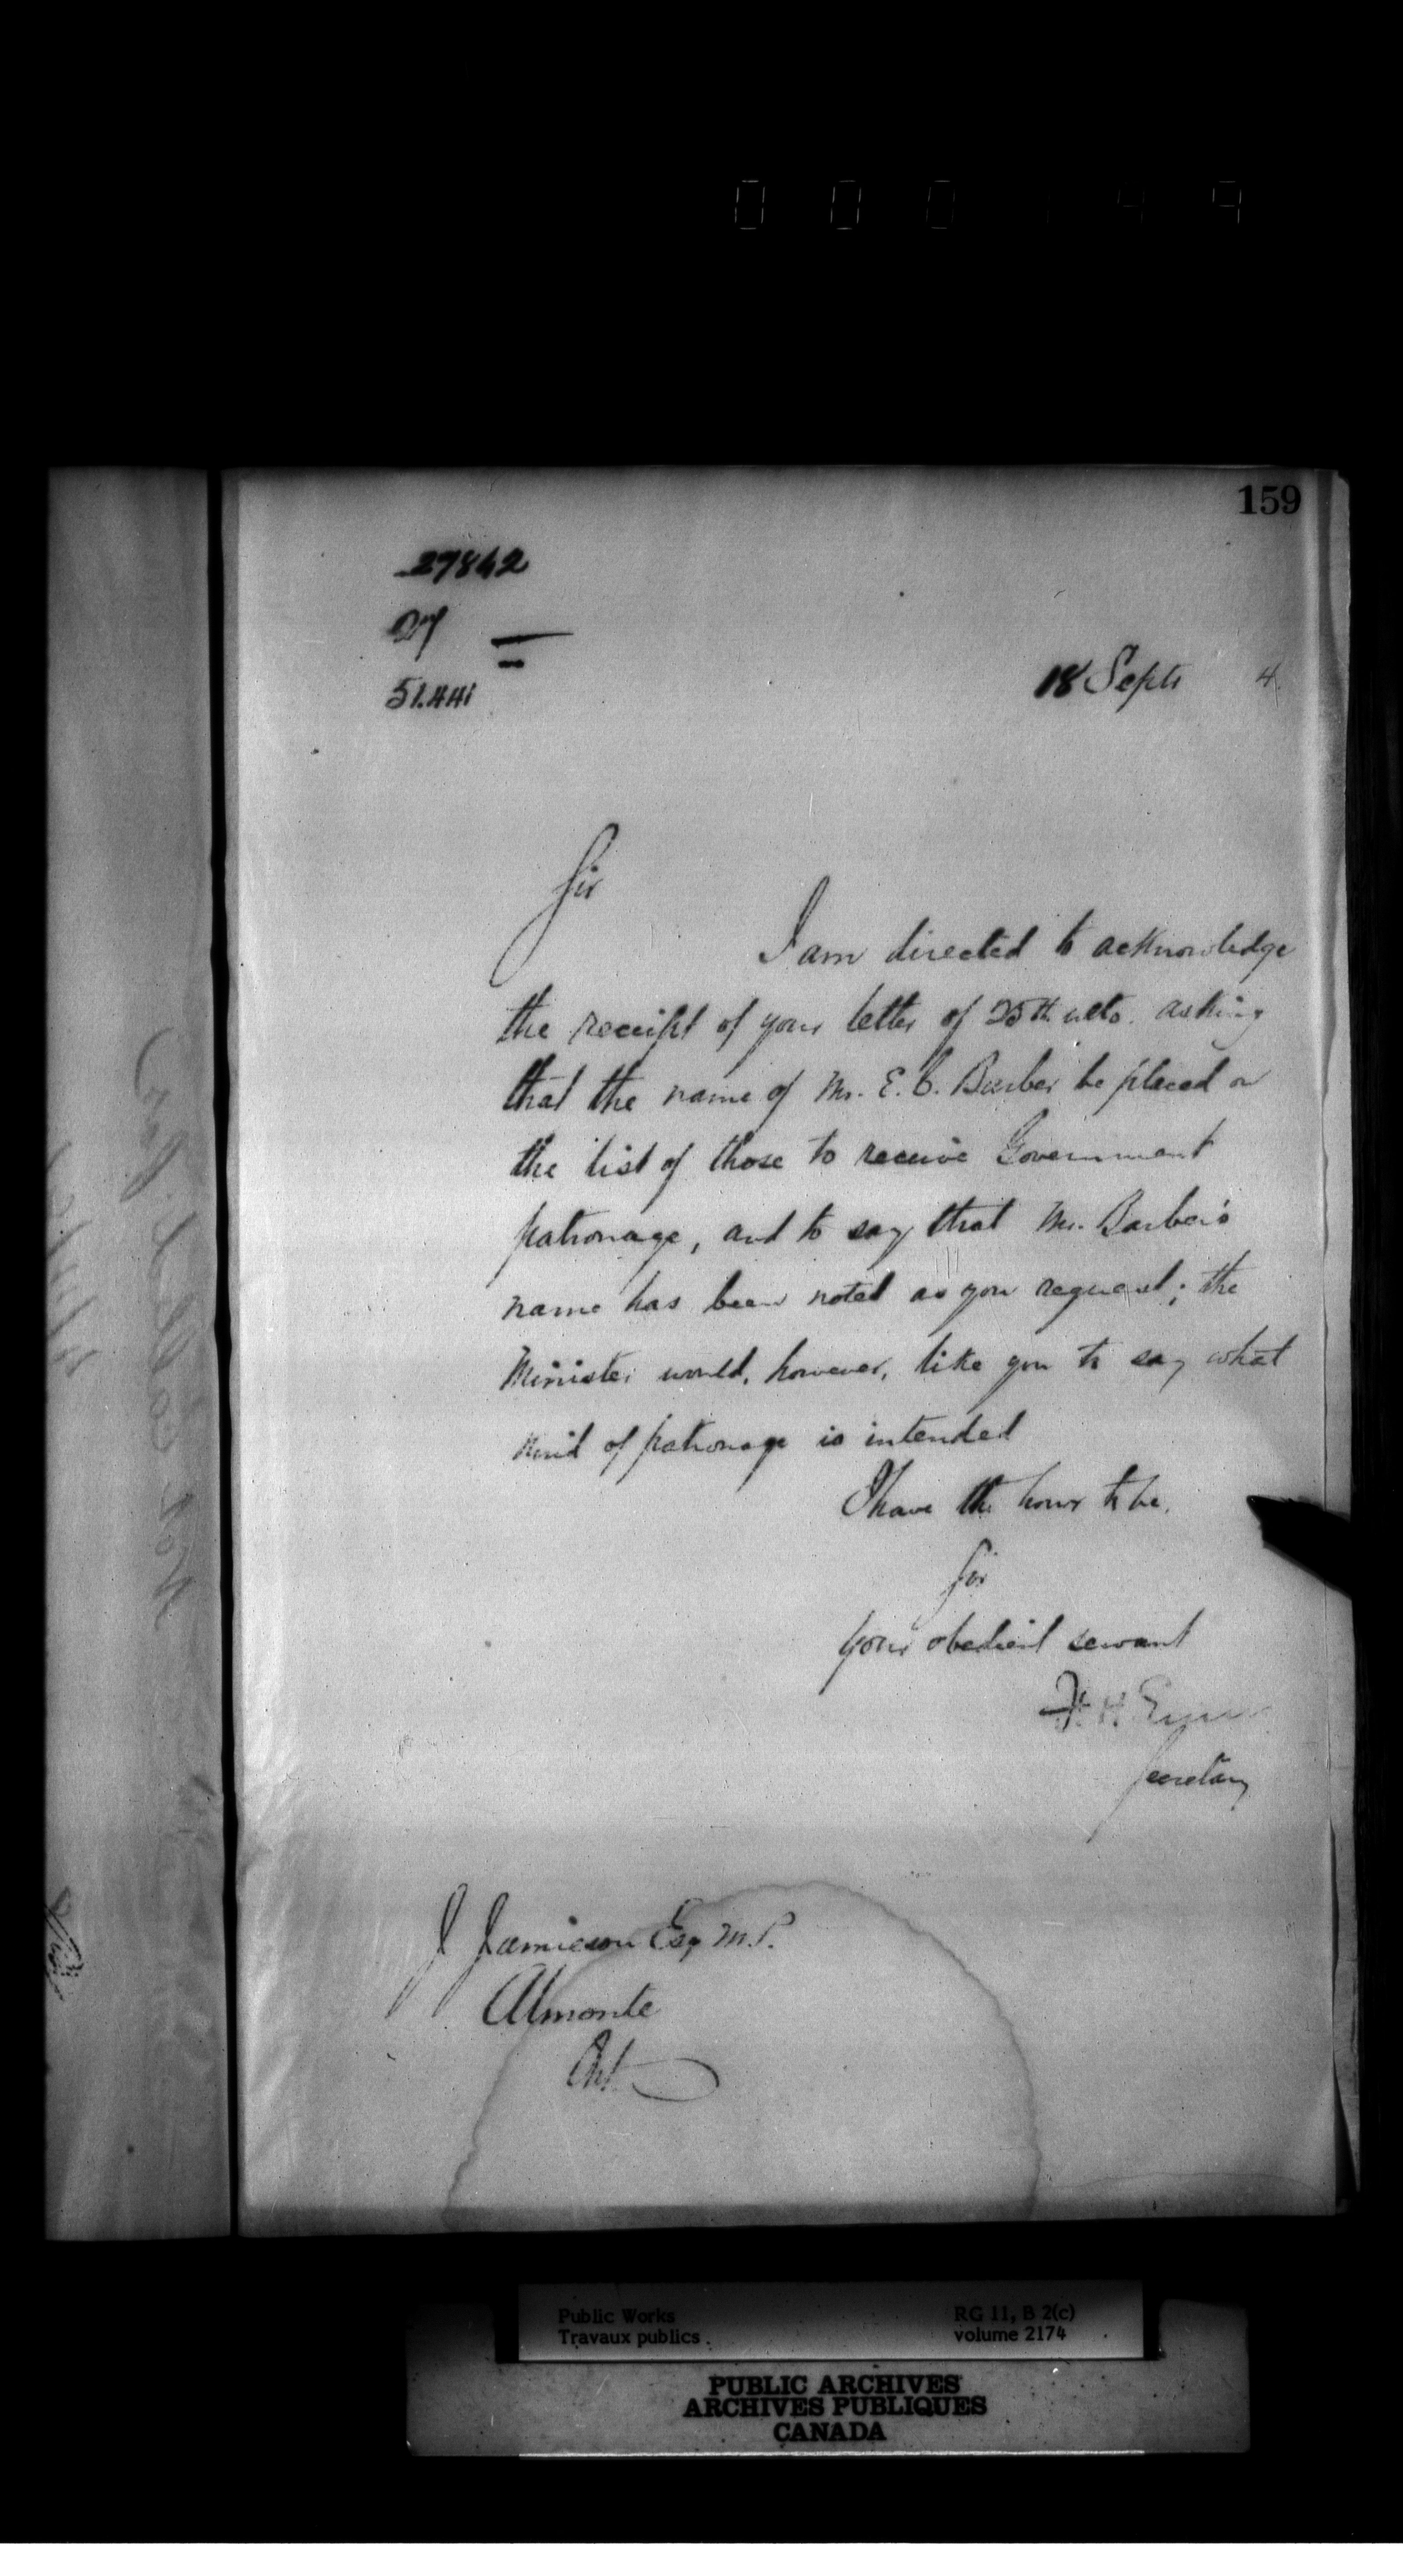 159
27862
51.441
18 Septr 4.
Sir
I am directed to acknowledge
the receipt of your letter of 25th ulto. asking
that the name of Mr. E. C. Barber be placed on
the list of those to receive Government
patronage, and to say that Mr. Barber's
name has been noted as you request; the
Minister would, however, like you to say what
kind of patronage is intended
I have the honor to be,
Sir
your obedient servant
F. H. Ennis
Secretary
J Jamieson Esq M.P.
Almonte
Ont.
Public Works RG 11, B 2(c)
Travaux publics volume 2174
PUBLIC ARCHIVES
ARCHIVES PUBLIQUES
CANADA